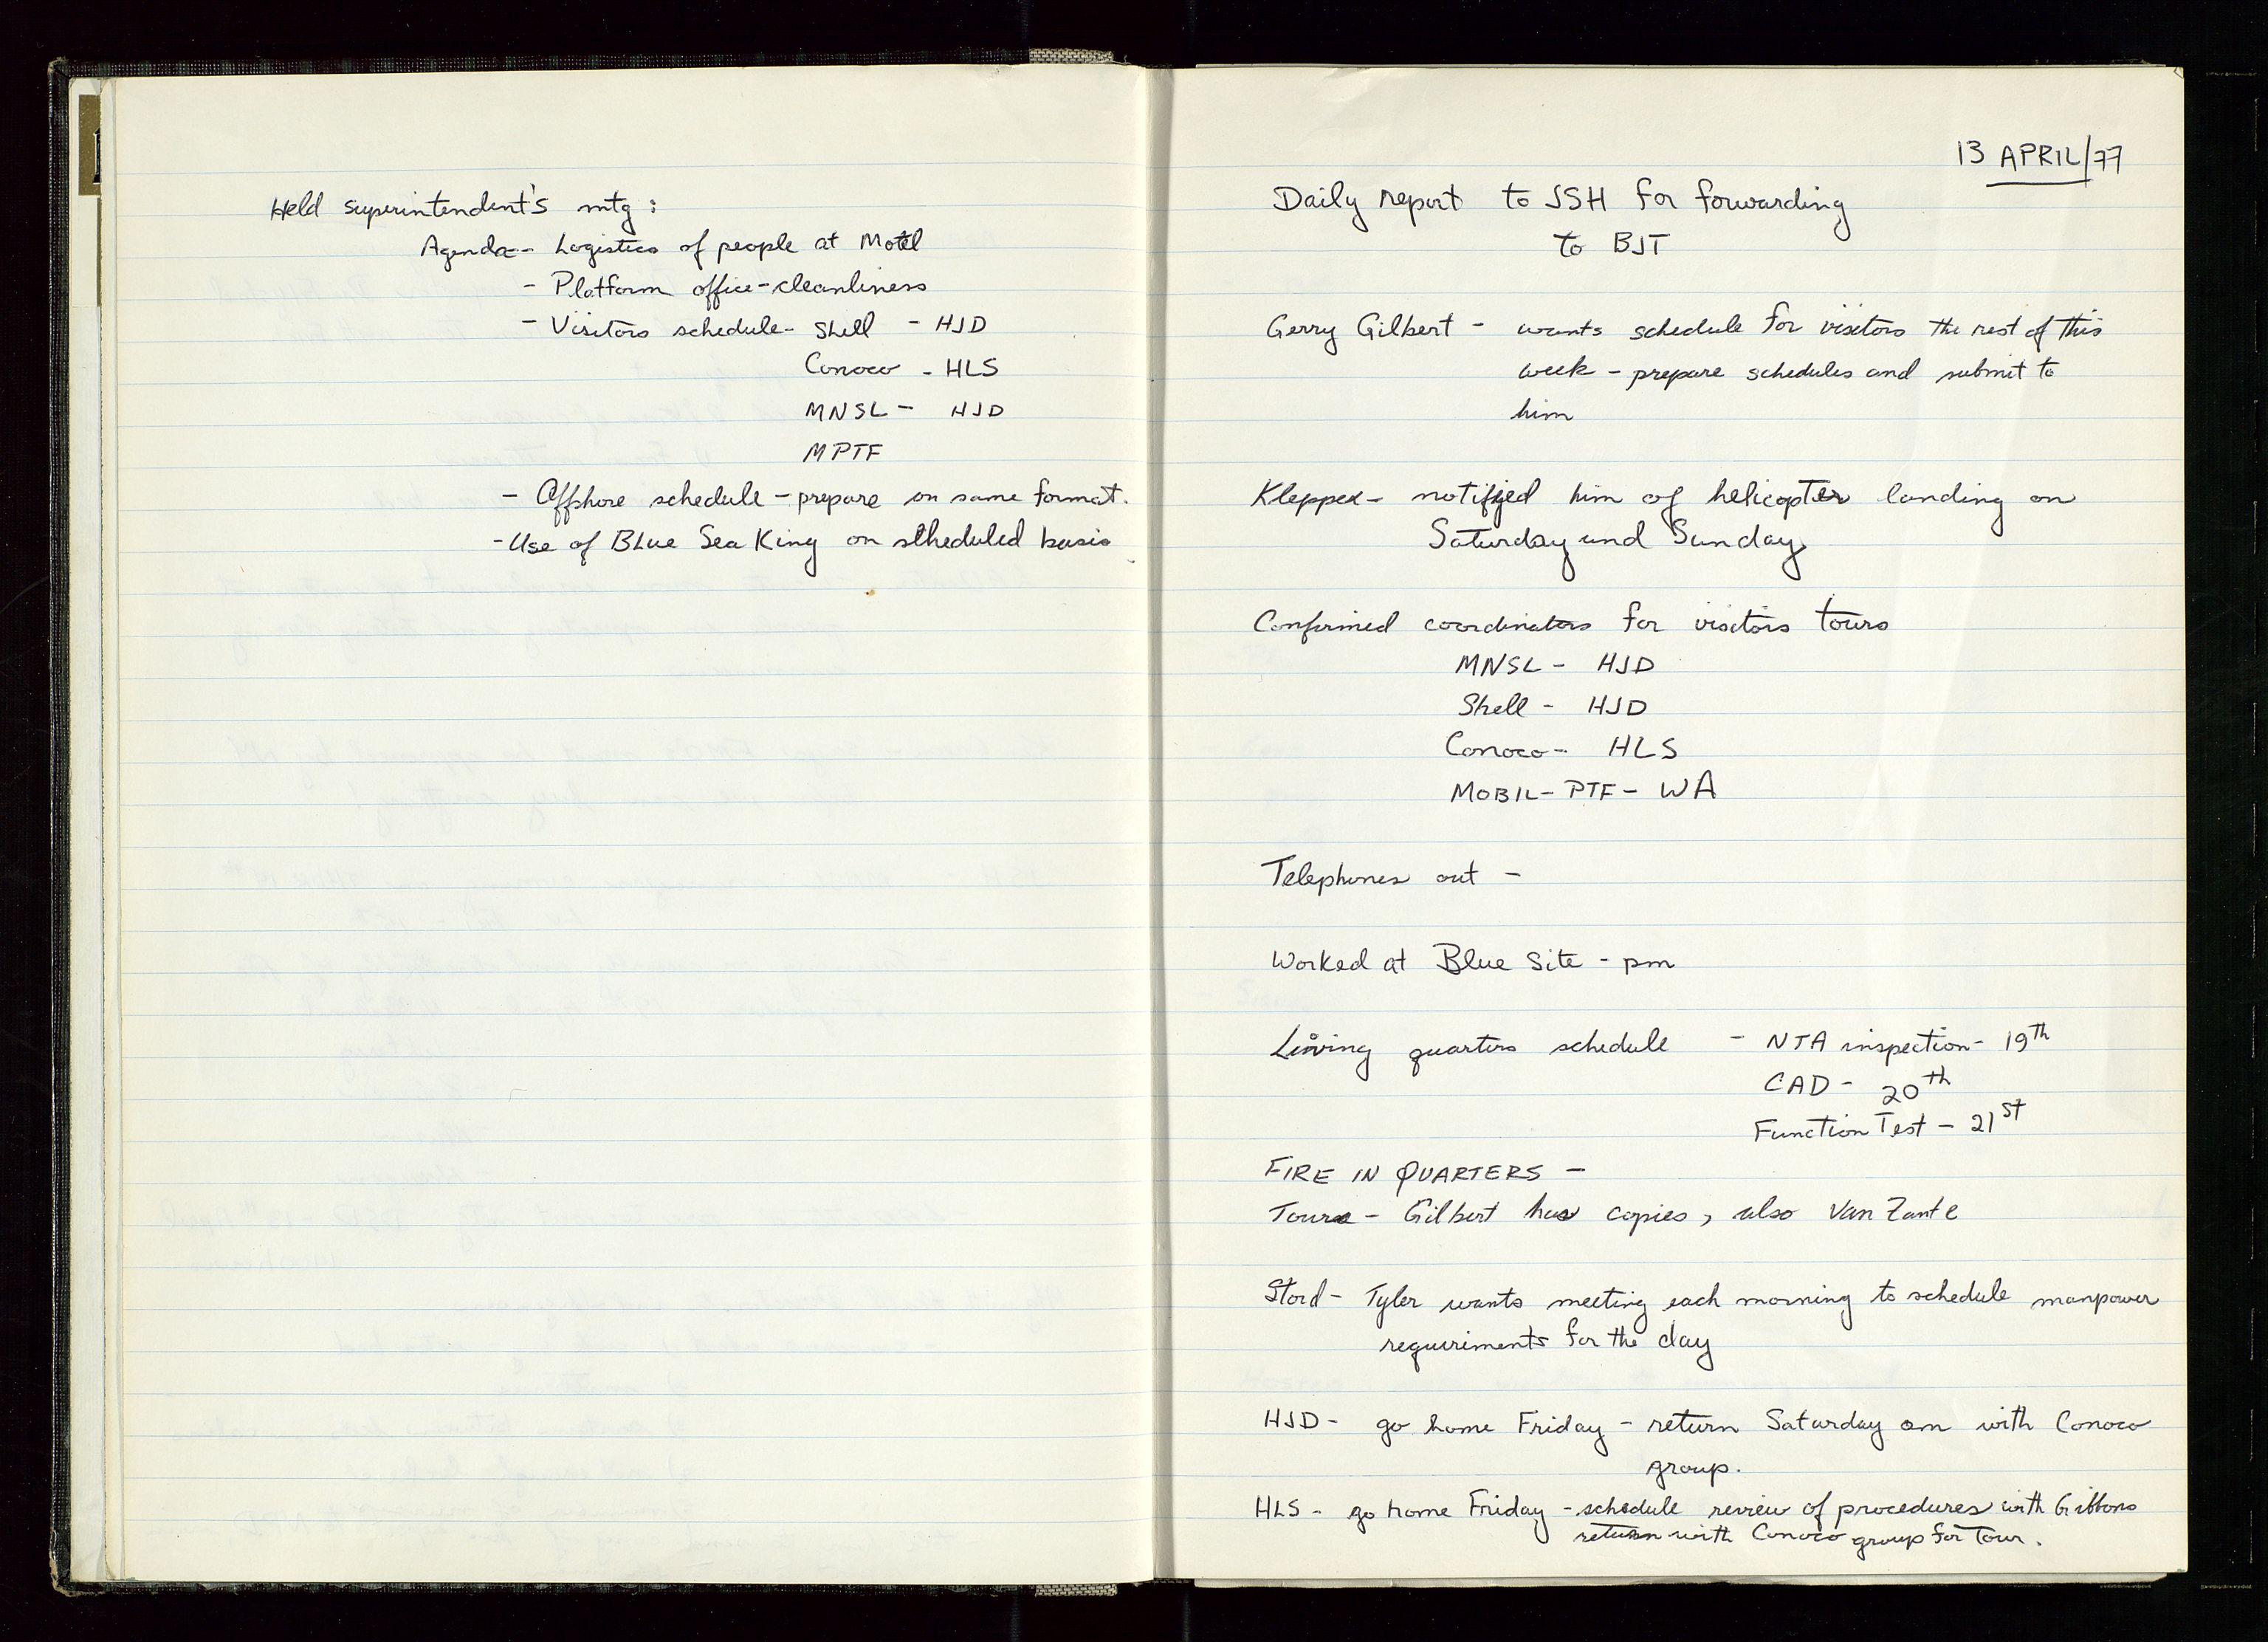 Held superintendent's mtg :
Agenda - Logistics of people at Motel
- Platform office - cleanliness
- Visitors schedule - Shell - HJD
Conoco - HLS
MNSL - HJD
MPTF
- Offshore schedule - prepare on same format.
- Use of Blue Sea King on scheduled basis
13 APRIL/77
Daily report to JSH for forwarding
to BJT
Gerry Gilbert - wants schedule for visitors the rest of this
week - prepare schedules and submit to
him
Klepper - notified him of helicopter landing on
Saturday and Sunday
Confirmed coordinators for visitors tours
MNSL - HJD
Shell - HJD
Conoco - HLS
MOBIL - PTF - WA
Telephones out -
Worked at Blue Site - pm
Living quarters schedule - NTA inspection - 19th
CAD - 20th
Function Test - 21st
FIRE IN QUARTERS -
Tours - Gilbert has copies, also Van Zante
Stord - Tyler wants meeting each morning to schedule manpower
requirements for the day
HJD - go home Friday - return Saturday am with Conoco
group.
HLS - go home Friday - schedule review of procedures with Gibbons
return with Conoco group for Tour.